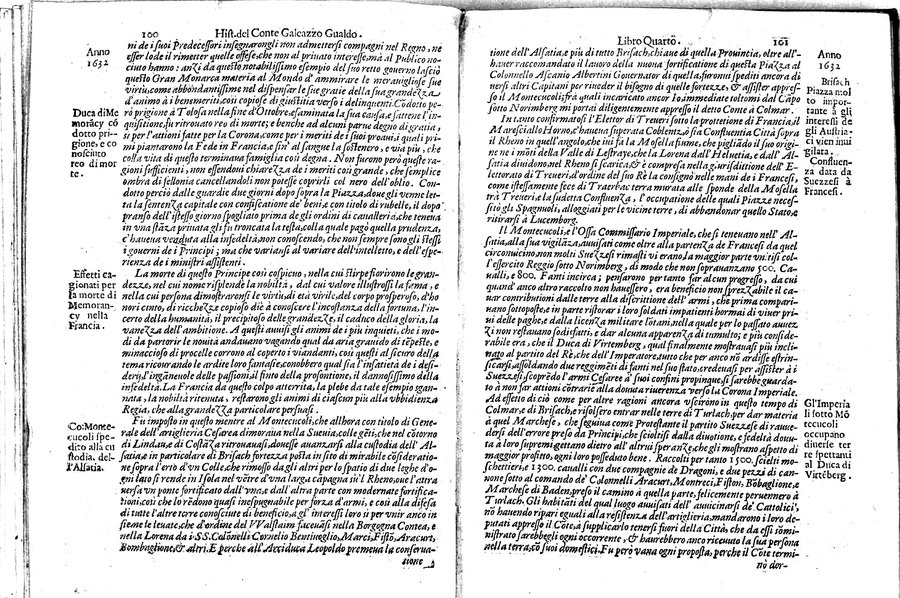 100 Hist. del Conte Galeazzo Gualdo.
Anno
1632
ni de i suoi Predecessori insegnarongli non admettersi compagni nel Regno, ne
esser lode il rimetter quelle offese, che non al priuato interesse, mà al Publico no-
ciuto hanno: anzi da questo notabilissimo esempio del suo retto gouerno lasciò
questo Gran Monarca materia al Mondo d'ammirare le merauigliose sue
virtù, come abbondantissime nel dispensar le sue gratie della sua grandezza
d'animo à i benemeriti, così copiose di giustitia verso i delinquenti. Cōdotto per
Duca di Me
moràcy cō
dotto prig
gione, e co
nosciuto
reo di mor
te.
rò prigione à Tolosa nella fine d'Ottobre, esaminata la sua causa, e fattene l'in-
quisitione, fù ritrouato reo di morte; e benche ad alcuni parue degno di gratia,
sì per l'attioni fatte per la Corona, come per i meriti de i suoi proaui, i quali pri-
mi piantarono la Fede in Francia, e fin' al sangue la sostenero, e via più, che
colla vita di questo terminaua famiglia così degna. Non furono però queste ra-
gioni sufficienti, non essendoui chiarezza de i meriti così grande, che semplice
ombra di fellonia cancellandoli non potesse coprirli col nero dell'oblio. Con-
dotto perciò dalle guardie due giorni dopo sopra la Piazza, doue gli venne le-
ta la sentenza capitale con confiscatione de' beni, e con titolo di rubelle, il dopò
pranso dell'istesso giorno spogliato prima de gli ordini di caualleria, che teneua
in vna stāza priuata gli fù troncata la testa, colla quale pagò quella prudenza,
c'haueua venduta alla infedeltà, non conoscendo, che non sempre sono gli stessi
i gouerni de i Principi; ma che variansi al variare dell'intelletto, e dell'espe-
rienza de i ministri assistenti.
Effetti ca-
gionati per
la morte di
Memoran-
cy nella
Francia.
La morte di questo Principe così cospicuo, nella cui stirpe fiorirono le gran-
dezze, nel cui nome risplende la nobiltà, dal cui valore illustrossi la fama, e
nella cui persona dimostraronsi le virtù, di età virile, del corpo prosperoso, d'ho
nori cinto, di ricchezze copioso diè à conoscere l'incostanza della fortuna, l'in-
certo della humanità, il precipitoso delle grandezze, il caduco della gloria, la
vanezza dell'ambitione. A questi auuisi gli animi de i più inquieti, che i mo-
di da partorir le nouità andauano vagando qual da aria grauido di tēpeste, e
minaccioso di procelle corrono al coperto i viandanti, così questi al sicuro della
tema ricourando le ardite loro fantasie, conobbero qual sia l'instabilità de i desi-
derij, l'ingāneuole delle passioni, il finto della prosontione, il dannosissimo della
infedeltà. La Francia da questo colpo atterrita, la plebe da tale esempio ggan-
nata, la nobiltà ritenuta, restarono gli animi di ciascun più alla vbbidienza
Regia, che alla grandezza particolare persuasi.
Co: Monte-
cucoli spe-
dito alla cu
stodia, del-
l'Alsatia.
Fù imposto in questo mentre al Montecucoli, che allhora con titolo di Gene-
rale dell'artiglieria Cesarea dimoraua nella Sueuia, colle gēti, che nel cōtorno
di Lindau, e di Costāza ritrouauasi, douesse auanzarsi alla custodia dell'Al-
satia, e in particolare di Brisach fortezza posta in sito di mirabile cōsideratio-
ne sopra l'erto d'vn Colle, che rimosso da gli altri per lo spatio di due leghe d'o-
gni lato si rende in Isola nel vētre d'vna larga cāpagna in'l Rheno, oue l'attra
uersa vn ponte fortificato dall'vna, e dall'altra parte con moderate fortifica-
tioni, così che lo rēdono quasi inespugnabile per forza d'armi, e così alla difesa
di tutte l'altre terre conosciute di beneficio, à gl'interessi loro si per vnir anco in
sieme le leuate, che d'ordine del VValstaim faceuāsi nella Borgogna Contea, e
nella Lorena da i SS. Colonelli Cornelio Bentiuoglio, Marsi, Fistō, Aracurt,
Bombaglione, & altri. E perche all'Arciduca Leopoldo premeua la conserua-
tione
Libro Quarto. 101
Anno
1632
tione dell'Alsatia, e più di tutto Brisach, chiaue di quella Prouintia, oltre all'-
hauer raccomandato il lauoro della nuoua fortificatione di questa Piazza al
Colonnello Ascanio Albertini Gouernator di quella, furonui spediti ancora di-
uersi altri Capitani per rimeder il bisogno di quelle fortezze, & assister appres-
so il Montecucoli; frà quali incaricato anco Io, immediate toltomi dal Capo
sotto Norimberg mi portai diligentemente appresso il detto Conte à Colmar.
Brisach
Piazza mol
to impor-
tante à gli
interessi de
gli Austria-
ci vien inui
gilata.
In tanto confirmatosi l'Elettor di Treueri sotto la protettione di Francia, il
Maresciallo Horno, c'haueua superata Coblenzo, sia Confluentia Città sopra
il Rheno in quell'angolo, che iui fà la Mosella fiume, che pigliado il suo origi-
nato in vna delle Valle di Lestraye, che la Lorena dall'Heluetia, e dall'Al-
satia diuidono nel Rheno si scarica, & è compresa nella giurisdittione dell'E-
lettorato di Treueri, d'ordine del suo Rè la consegnò nelle mani de i Francesi,
come istessamente fece di Traerbac terra murata alle sponde della Mosella
trà Treueri, e la sudetta Confluenza, l'occupatione delle quali Piazze necessi-
tò gli Spagnuoli, alloggiati per le vicine terre, di abbandonar quello Stato, e
ritirarsi à Lucemborg.
Confluen-
za data da
Suezzesi à
Francesi.
Il Montecucoli, e l'Ossa Commissario Imperiale, che si teneuano nell'Al-
satia, alla sua vigilāza, auuisati come oltre alla partenza de Francesi da quel
circonuicino, non molti Suezzesi rimasti vi erano la maggior parte vnitisi col-
l'essercito Reggio sotto Norimberg, di modo che non soprauanzauano 500. Ca-
ualli, e 800. Fanti incirca; pensarono per tanto far alcun progresso, da cui
quand'anco altro raccolto non hauessero, era beneficio non sprezzabile il ca-
uar contributioni dalle terre alla discrittione dell'armi, che prima compari-
uano sottoposte, e in parte ristorar i loro soldati impatienti hormai di viuer pri-
ui delle paghe, e dalla licenza militare lōtani, nella quale per lo passato auuez
zi non restauano sodisfatti, e dar alcuna apparenza di tumulto; e più conside-
rabile era, che il Duca di Virtemberg, qual finalmente mostrauasi più incli-
nato al partito del Rè, che dell'Imperatore, tutto che per anco nō ardisse estrin-
sicarsi, assoldando due reggimēti di fanti nel suo stato, credeuasi per assister à i
Suezzesi: scoprēdo l'armi Cesaree à suoi confini propinque, si sarebbe guarda-
to à non far attioni cōtrarie alla douuta riuerenza verso la Corona Imperiale.
Ad effetto di ciò come per altre ragioni ancora vscirono in questo tempo di
Colmar, & di Brisach, risolsero entrar nelle terre di Turlach, per dar materia
à quel Marchese, che seguiua come Protestante il partito Suezzese di rauue-
dersi dell'errore preso da Principi, che sciolti si dalla diuotione, e fedeltà douu-
ta à loro supremi gettano dietro all'altrui speraze, che gli mostrano aspetto di
maggior profitto, ogni loro posseduto bene. Raccolti per tanto 1500. scielti mo-
schettieri, e 1300. caualli con due compagnie de Dragoni, e due pezzi di can-
none sotto al comando de' Colonnelli Aracurt, Montreci, Fiston, Bōbaglione, e
Marchese di Baden, preso il camino à quella parte, felicemente peruennero à
Turlach. Gli habitāti del qual luogo auuisati dell'auuicinarsi de' Cattolici,
nō hauendo ripari eguali alla resistenza dell'artiglieria, mandarono i loro de-
putati appresso il Cōte, à supplicarlo tenersi fuori della Città, che da essi sōmi-
nistrato sarebbegli ogni occorrente, & haurebbero anco riceuuto la sua persona
nella terra, cō suoi domestici. Fù però vana ogni proposta, perche il Cōte termi-
Gl'Imperia
li sotto Mō
tecucoli
occupano
diuerse ter
re spettanti
al Duca di
Virtēberg.
nò dor-